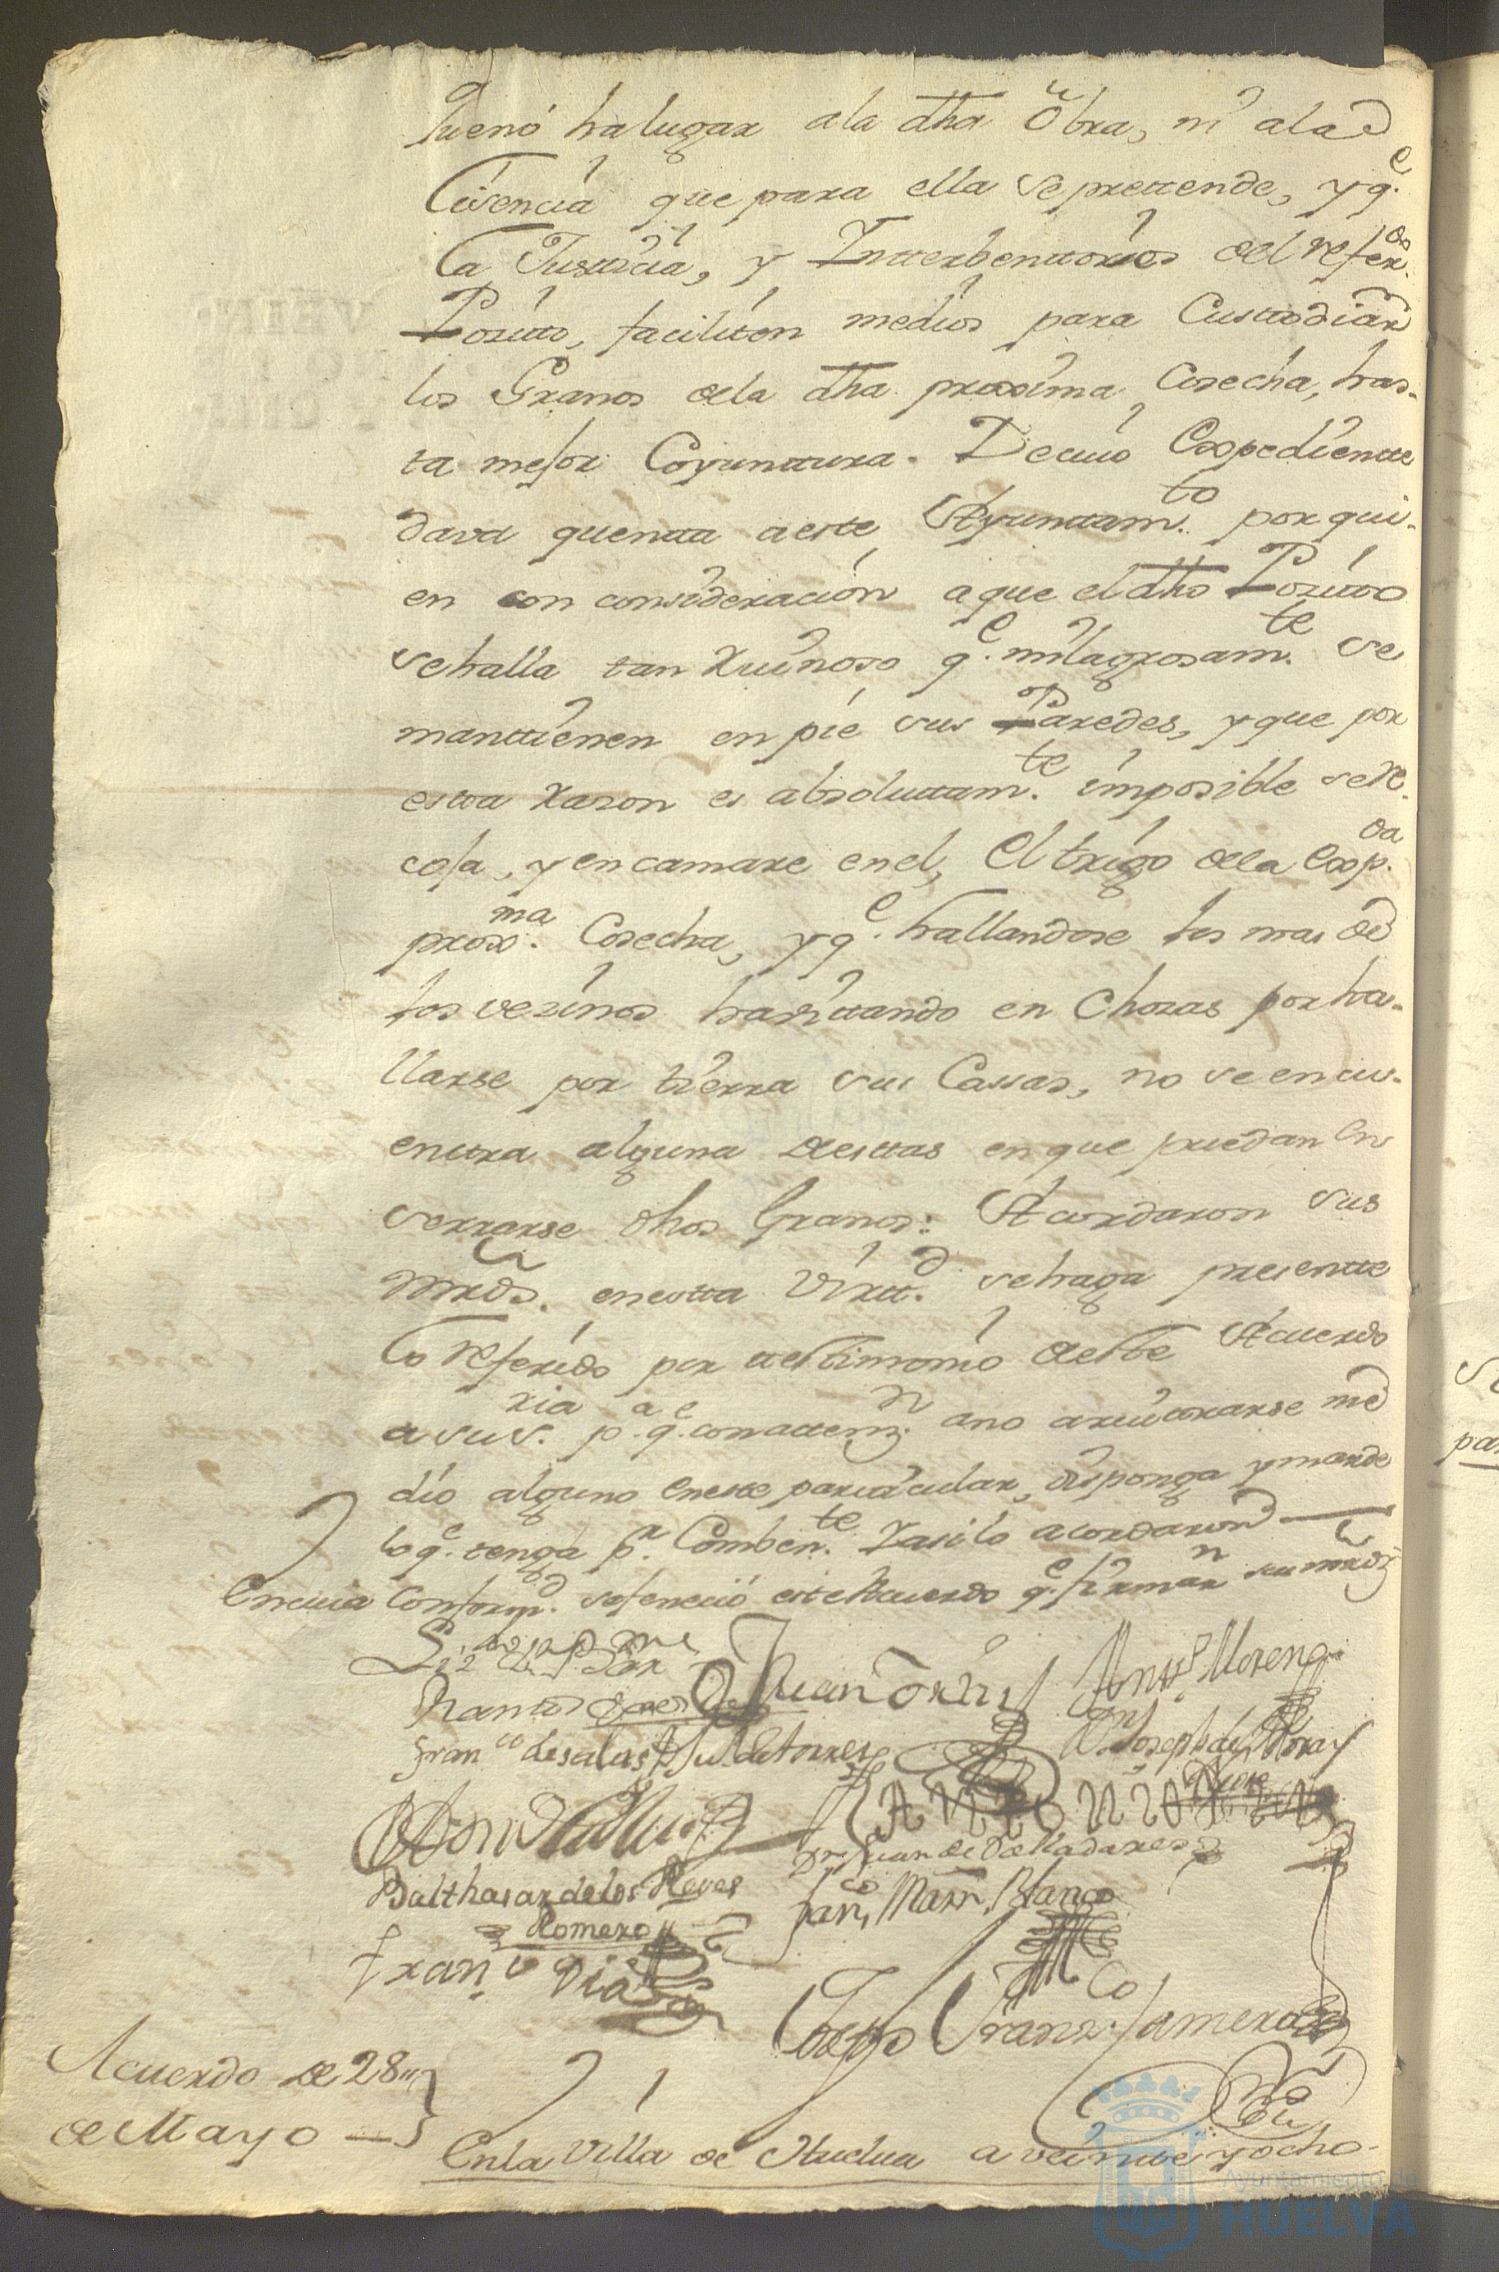 que no ha lugar a la dha Obra, ni a la
Lisencia que para ella se prettende, y q.e
la Justicia, y Intterbenttores del refer.do
Pozitto, facilitén medios para Custtodiar
los Granos dela dha proxima Cosecha, has-
ta mejor Coyunttura. De cuio Expedientte
dava quentta a este Ayunttam.to por qui-
en con consideracion a que el dho Pozitto
se halla tan Ruinoso q.e milagrosam.te se
manttienen en pie sus Paredes, y que por
estta Razon es absoluttam.te imposible se Re-
coja, y encamare en el, El trigo dela Exp.da
prox.ma Cosecha, y q.e hallandose los mas de
los vezinos havittando en Chozas por ha-
llarse por tierra sus Cassas, no se encu-
enttra alguna de esttas en que puedan en
serrarse dhos Granos: Acordaron sus
mrds. en estta Virtt.d se haga presentte
lo referido por testtimonio de este Acuerdo
a su S.ria p.a q.e con attenz.n a no arvittrarse me
dio alguno en este parttícular, disponga y mande
lo q.e tenga p.r Comben.te Y asi lo acordaron
En cuia Conform.d se feneció este Acuerdo q.e firman sus mrds
Ramos
Juan Ortiz
Antt.o Moreno
Fran.co de salas
de torres
D.n Joseph de
D.n Juan de Valladares
Balthasar de los Reyes
Romero
Fran.co Martn. Blanco
Fran.co Diaz
Diego Franz.co Romero
Acuerdo de 28
de Mayo
En la Villa de Huelva a veintte y ocho
Ayuntamiento de
HUELVA
pa